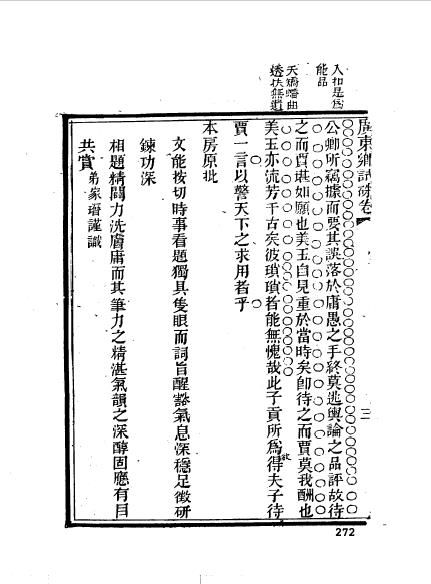 入扣是爲
能品
天矯蟠曲
透扶無遺
廣東鄉試硃卷
三
公卿所竊據而要其誤落於庸愚之手終莫逃輿論之品評故待
之而賈堪如願也美玉自見重於當時矣卽待之而賈莫我酬也
美玉亦流芳千古矣彼瑣瑣者能無愧哉此子貢所爲得夫子待
賈一言以警天下之求用者乎
本房原批
文能按切時事看題獨具隻眼而詞旨醒豁氣息深穩足徵研
鍊功深
相題精闢力洗膚庸而其筆力之精湛氣韻之深醇固應有目
共賞
弟家瑨謹識
272